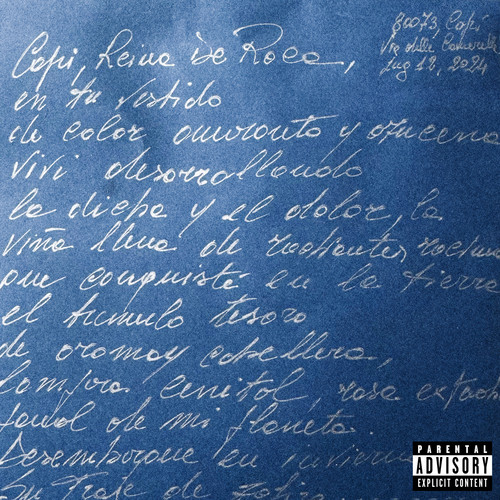 80073, Capi
Via delle Camerelle
Lug 12, 2024
Capi, Reina de Roca,
en tu vestido
de color amaranto y azucena
vivi desarrollando
la dicha y el dolor, la
viña llena de radiantes
que conquisté en la tierra
el tumulo tesoro
de aroma y cabellera,
lampra cenital, rosa
panal de mi planeta.
Desembarque en invierno
Su traje de
PARENTAL
ADVISORY
EXPLICIT CONTENT